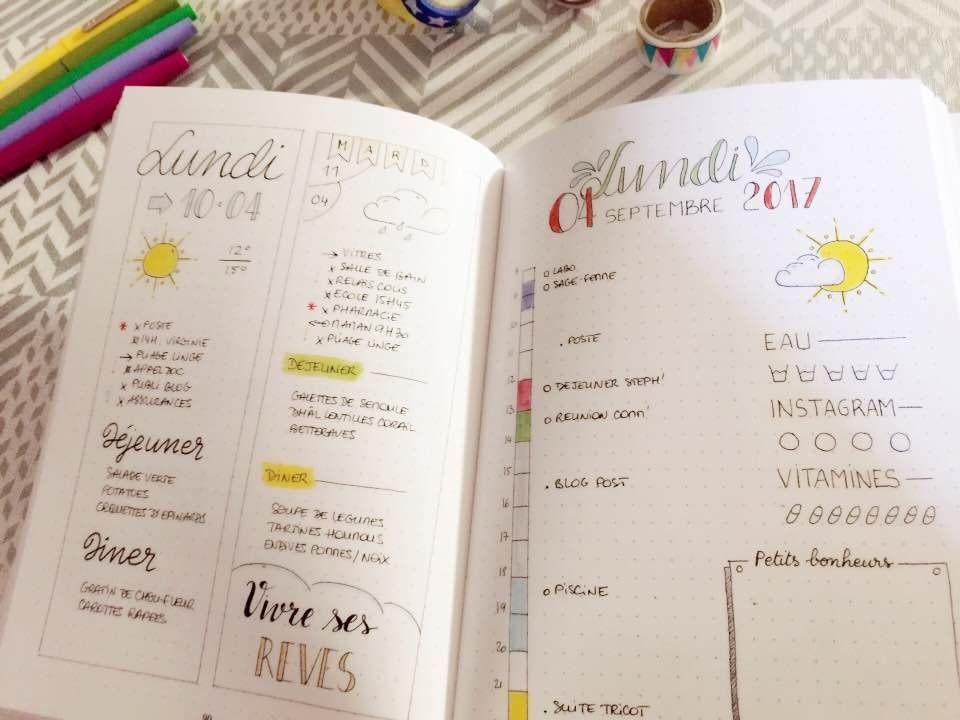 Lundi
10.04
12°
15°
* x POSTE
x 14H. VIRGINIE
→ PLIAGE LINGE
APPEL DOC
x PUBLI BLOG
x ASSURANCES
Déjeuner
SALADE VERTE
POTATOES
CROQUETTES D'EPINARDS
Diner
GRATIN DE CHOU-FLEUR
CAROTTES RAPEES
MARDI
11
04
→ VITRES
x SALLE DE BAIN
x RELAIS COLIS
x ECOLE 15H45
* x PHARMACIE
MAMAN 9H30
x PLIAGE LINGE
DEJEUNER
GALETTES DE SEMOULE
DHÂL LENTILLES CORAIL
BETTERAVES
DINER
SOUPE DE LEGUMES
TARTINES HOUMOUS
ENDIVES POMMES/NOIX
Vivre ses
REVES
Lundi
04 SEPTEMBRE 2017
9
10
12
13
14
15
16
17
18
19
20
21
O LABO
O SAGE-FEMME
. POSTE
O DEJEUNER STEPH'
O REUNION COM'
. BLOG POST
O PISCINE
. SUITE TRICOT
EAU
INSTAGRAM
VITAMINES
Petits bonheurs